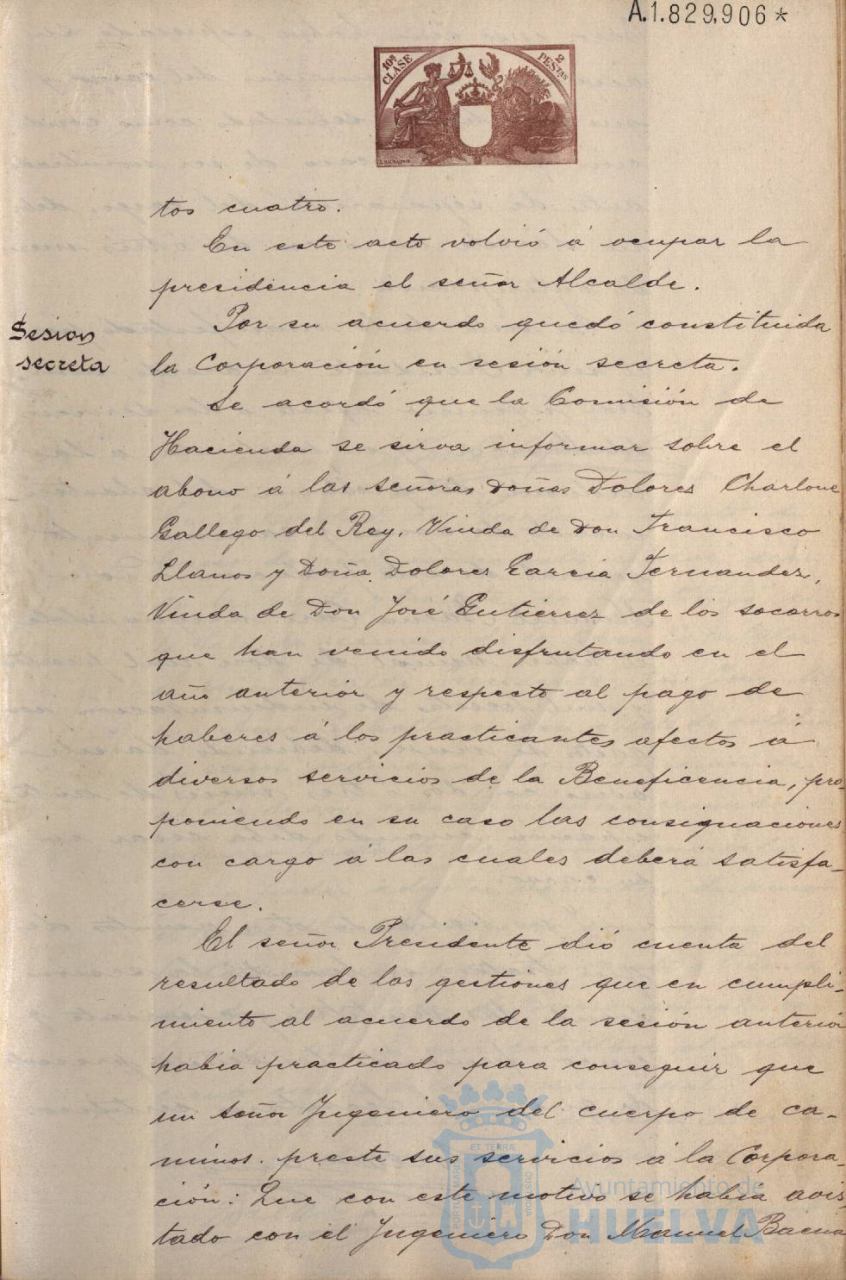 A.1.829,906*
10ª CLASE
2 PESTAS
tos cuatro.
En este acto volvió á ocupar la
presidencia el señor Alcalde.
Sesion
secreta
Por su acuerdo quedó constituida
la Corporación en sesión secreta.
Se acordó que la Comisión de
Hacienda se sirva informar sobre el
abono á las señoras Doñas Dolores Charlone
Gallego del Rey, Viuda de Don Francisco
Llanos y Doña Dolores Garcia Fernandez,
Viuda de Don José Gutierrez de los socorros
que han venido disfrutando en el
año anterior y respecto al pago de
haberes á los practicantes afectos á
diversos servicios de la Beneficencia, pro-
poniendo en su caso las consignaciones
con cargo á las cuales deberá satisfa-
cerse.
El señor Presidente dió cuenta del
resultado de las gestiones que en cumpli-
miento al acuerdo de la sesión anterior
habia practicado para conseguir que
un señor Ingeniero del cuerpo de ca-
minos. preste sus servicios á la Corpora-
ción: Que con este motivo se habia avis-
tado con el Ingeniero Don Manuel Baena
Ayuntamiento de
HUELVA